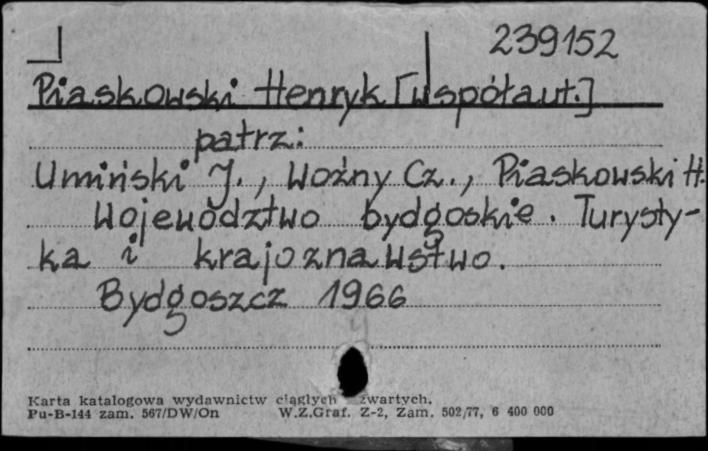 239152
Piaskowski Henryk [współaut.]
patrz:
Umiński J., Woźny Cz., Piaskowski H.
Województwo bydgoskie. Turysty-
ka i krajoznawstwo.
Bydgoszcz 1966
Karta katalogowa wydawnictw ciągłych zwartych.
Pu-B-144 zam. 567/DW/On W.Z.Graf. Z-2, Zam. 502/77, 6 400 000